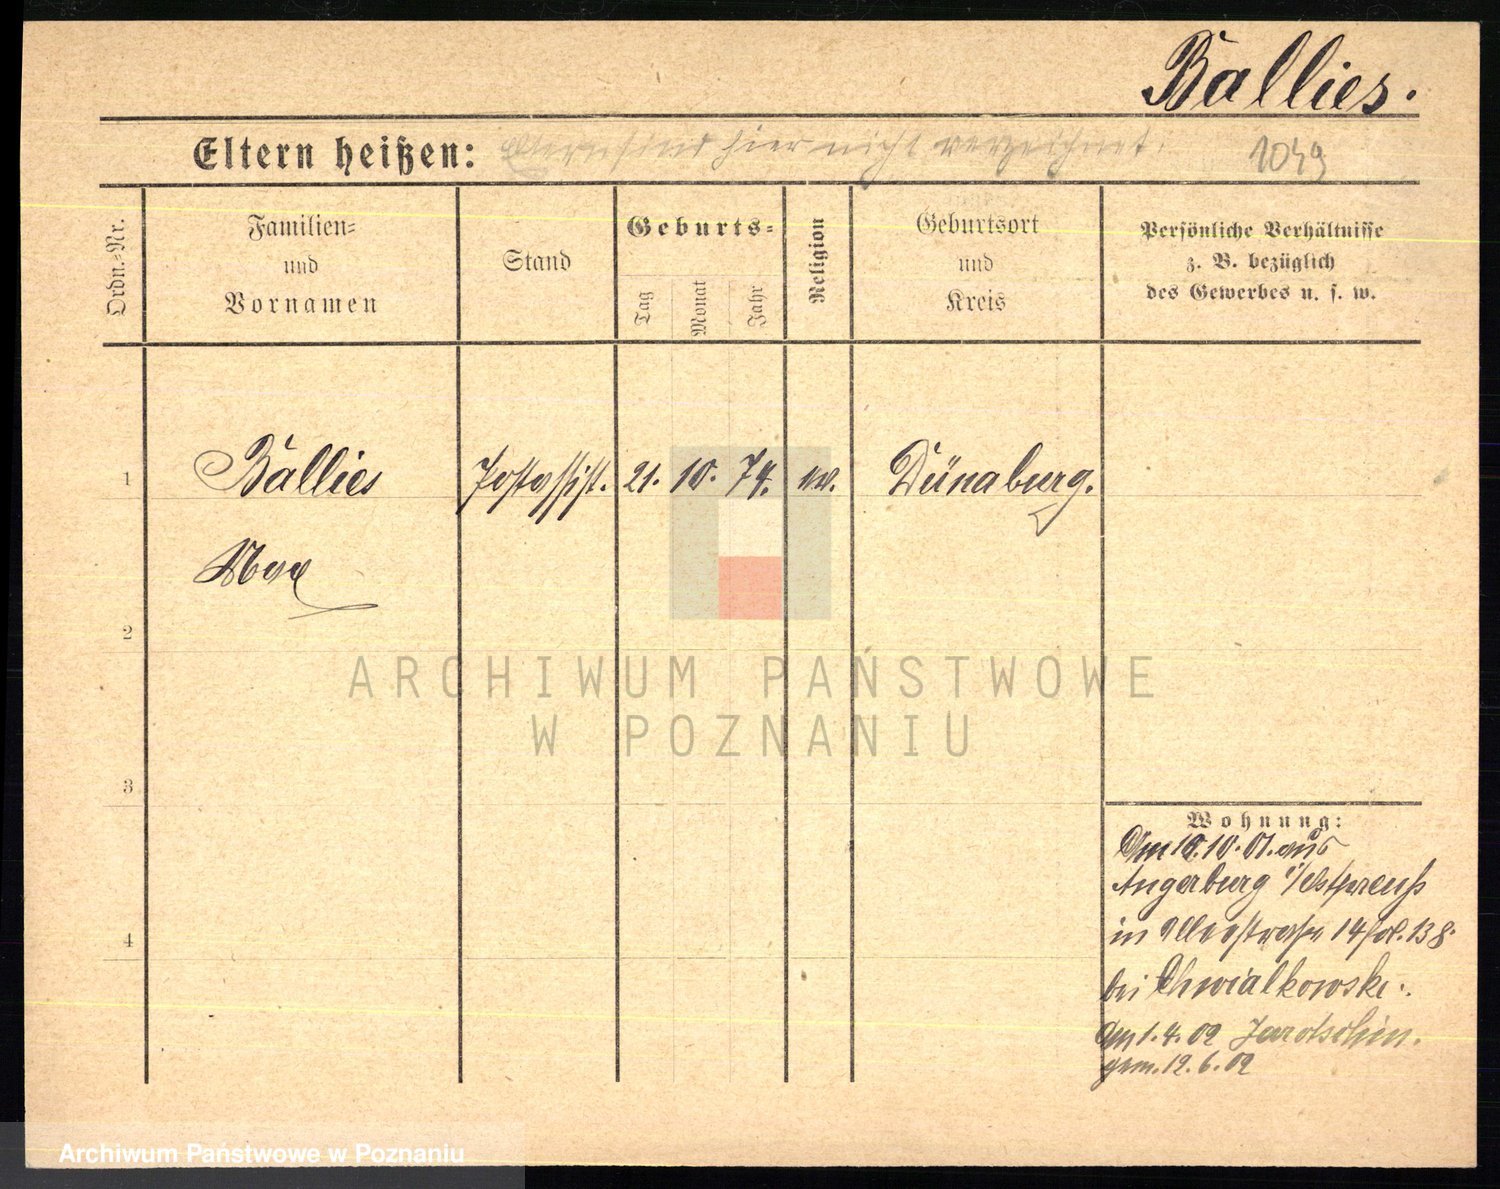 Ballies.
Eltern heißen: Eltern sind hier nicht verzeichnet. 1049
Ordn.-Nr.
Familien-
und
Vornamen
Stand
Geburts-
Tag
Monat
Jahr
Religion
Geburtsort
und
Kreis
Persönliche Verhältnisse
z. B. bezüglich
des Gewerbes u. s. w.
1 Ballies Postassist. 21. 10. 74. ev. Dünaburg.
Max
2
3
4
Wohnung:
Am 10.10.01. aus
Angerburg i/Ostpreuß
in 14 fol. 138.
bei Chwialkowski.
Am 1.4.02 Jarotschin.
gem. 12.6.02
ARCHIWUM PAŃSTWOWE
W POZNANIU
Archiwum Państwowe w Poznaniu